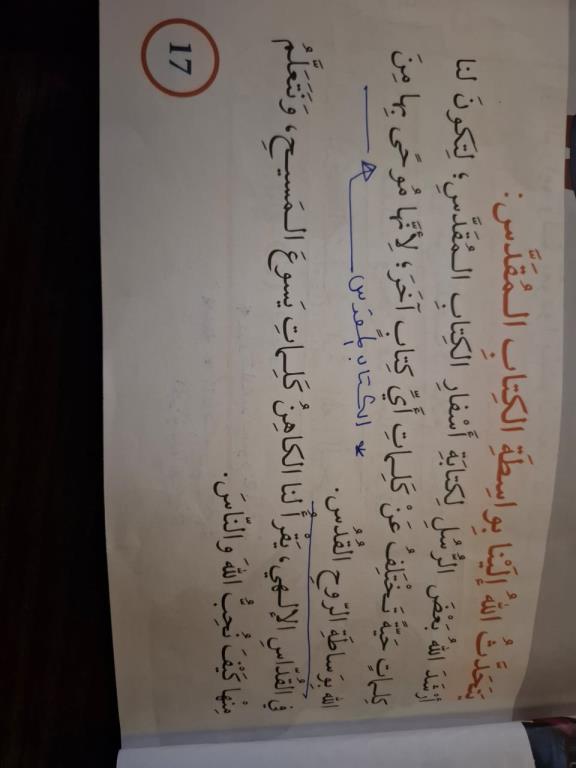 يَتَحَدَّثُ اللهُ إِلَيْنا بِواسِطَةِ الكِتابِ المُقَدَّسِ:
أَرْشَدَ اللهُ بَعْضَ الرُّسُلِ لِكِتابَةِ أَسْفارِ الكِتابِ المُقَدَّسِ؛ لِتَكونَ لنا
كَلِماتٍ حَيَّةً تَخْتَلِفُ عَنْ كَلِماتِ أَيِّ كِتابٍ آخَرَ؛ لأَنَّها مُوحًى بِها مِنَ
اللهِ بِوَساطَةِ الرّوحِ القُدُسِ.
* الكتاب المقدس
في القُدّاسِ الإلهيِّ، يَقْرأُ لنا الكاهِنُ كَلِماتِ يَسوعَ المَسيحِ، وَنَتَعَلَّمُ
مِنْها كَيْفَ نُحِبُّ اللهَ والنّاسَ.
17